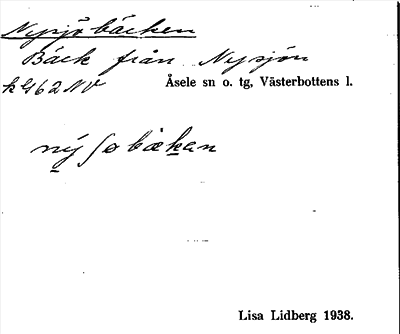 Nysjöbäcken
Bäck från Nysjön
k G162 NV
Åsele sn o. tg, Västerbottens l.
ný ʃøbækan
Lisa Lidberg 1938.